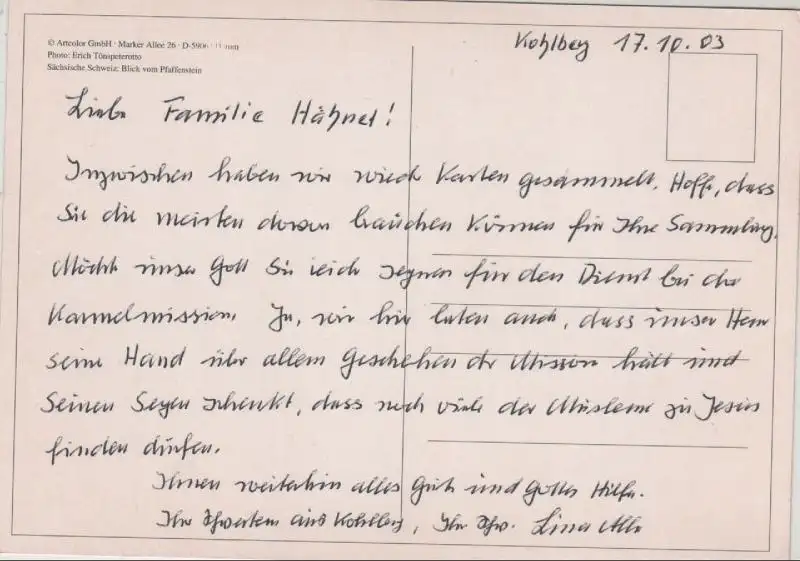 © Artcolor GmbH · Marker Allee 26 ·
Photo: Erich Tönspeterotto
Sächsische Schweiz: Blick vom Pfaffenstein
Kohlberg 17.10.03
Liebe Familie Hähnel!
Inzwischen haben wir wieder Karten gesammelt. Hoffe, dass
Sie die meisten davon brauchen können für Ihre Sammlung.
Möcht unser Gott Sie reich segnen für den Dienst bei der
Karmelmission. Ja, wir hier beten auch, dass unser Herr
seine Hand über allem Geschehen der Mission hält und
Seinen Segen schenkt, dass noch viele der Musleme zu Jesus
finden dürfen.
Ihnen weiterhin alles Gute und Gottes Hilfe.
Ihre Schwestern aus Kohlberg, Ihre Schw. Lina